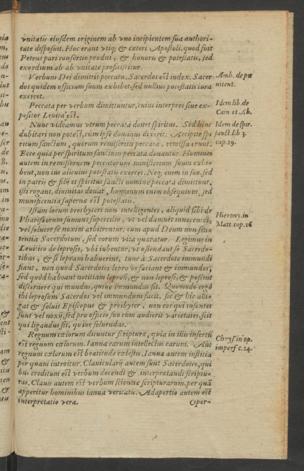 vnitatis eiusdem originem ab vno incipientem sua authori-
tate disposuit. Hoc erant vtiq; & cæteri Apostoli, quod fuit
Petrus pari consortio præditi, & honoris & potestatis, sed
exordium ab vnitate proficiscitur.
Verbum Dei dimittit peccata. Sacerdos est iudex. Sacer-
dos quidem officium suum exhibet sed nullius potestatis iura
exercet.
Amb. de pœ
nitent.
Peccata per verbum dimittuntur, cuius interpres siue ex-
positor Leuita est.
Idem lib. de
Cain et Ab.
Nunc videamus vtrum peccata donet spiritus. Sed hinc
dubitari non potest, cum ipse dominus dixerit: Accipite spi-
ritum sanctum, quorum remiseritis peccata, remissa erunt.
Ecce quia per spiritum sanctum peccata donantur. Homines
autem in remissionem peccatorum ministerium suum exhi-
bent, non ius alicuius potestatis exercent. Neq; enim in suo, sed
in patris & filii et spiritus sancti nomine peccata dimittunt,
isti rogant, diuinitas donat, humanum enim obsequium, sed
munificentia supernæ est potestatis.
Idem de spir.
sanct. lib. 3.
cap. 19.
Istum locum presbyteri non intelligentes, aliquid sibi de
Pharisæorum sumunt supercilio, vt vel damnent innocentes,
vel soluere se noxios arbitrentur, cum apud Deum non sen-
tentia Sacerdotum, sed eorum vita quæratur. Legimus in
Leuitico de leprosis, vbi iubentur, vt ostendant se Sacerdo-
tibus, & si lepram habuerint, tunc à Sacerdote immundi
fiant, non quod Sacerdotes leprosos faciant & immundos,
sed quod habeant notitiam leprosi, & non leprosi, & possint
discernere qui mundus, quiue immundus sit. Quomodo ergo
ibi leprosum Sacerdos vel immundum facit, sic & hic alli-
gat & soluit Episcopus & presbyter, non eos qui insontes
sunt vel noxii, sed pro officio suo cum audierit varietates, scit
qui ligandus sit, quiue soluendus.
Hieron. in
Matt. cap. 16
Regnum cælorum dicuntur scripturæ, quia in illis insertum
est regnum cælorum. Ianua earum intellectus earum. Aut
regnum cælorum est beatitudo cælestis. Ianua autem iustitia
per quam introitur. Clauicularii autem sunt Sacerdotes, qui-
bus creditum est verbum docendi & interpretandi scriptu-
ras. Clauis autem est verbum scientiæ scripturarum, per quā
aperitur hominibus ianua veritatis. Adapertio autem est
interpretatio vera.
Chrys. in op.
imperf. c. 24.
Oper-